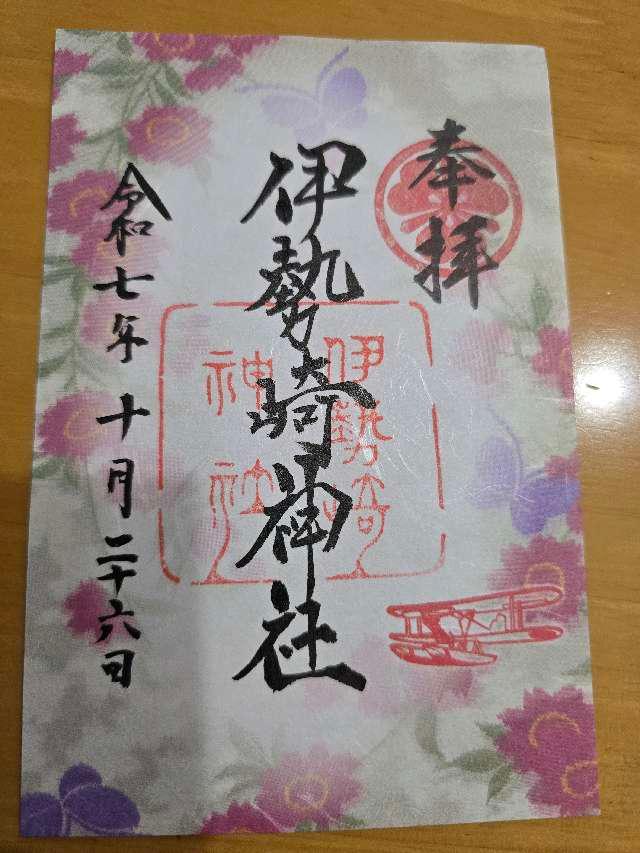 奉拝
伊勢崎神社
伊勢崎
神社
令和七年十月二十六日